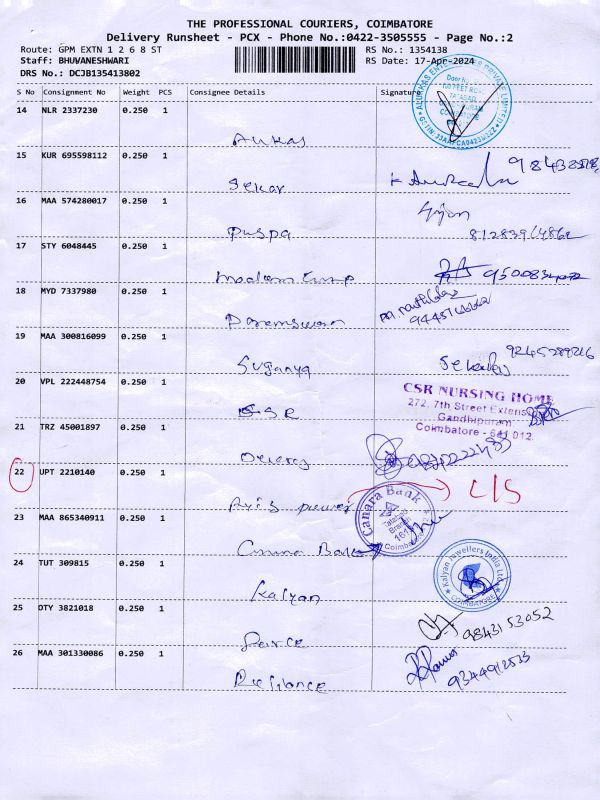 THE PROFESSIONAL COURIERS, COIMBATORE
Delivery Runsheet - PCX - Phone No.:0422-3505555 - Page No.:2
Route: GPM EXTN 1 2 6 8 ST RS No.: 1354138
Staff: BHUVANESHWARI RS Date: 17-Apr-2024
DRS No.: DCJB135413802
S No Consignment No Weight PCS Consignee Details Signature
14 NLR 2337230 0.250 1
15 KUR 695598112 0.250 1
Sekar
16 MAA 574280017 0.250 1
Puspa
17 STY 6048445 0.250 1
9500834072
18 MYD 7337980 0.250 1
19 MAA 300816099 0.250 1
Suganya
20 VPL 222448754 0.250 1
CSR NURSING HOME
272, 7th Street Extens
Gandhipuram
Coimbatore - 641 012.
21 TRZ 45001897 0.250 1
22 UPT 2210140 0.250 1
Axis power L/S
Canara Bank
Tatabad
Branch
Coimbatore
23 MAA 865340911 0.250 1
24 TUT 309815 0.250 1
Kalyan
Kalyan Jewellers India Ltd.
COIMBATORE
25 OTY 3821018 0.250 1
9843153052
26 MAA 301330086 0.250 1
Reliance
9344912533